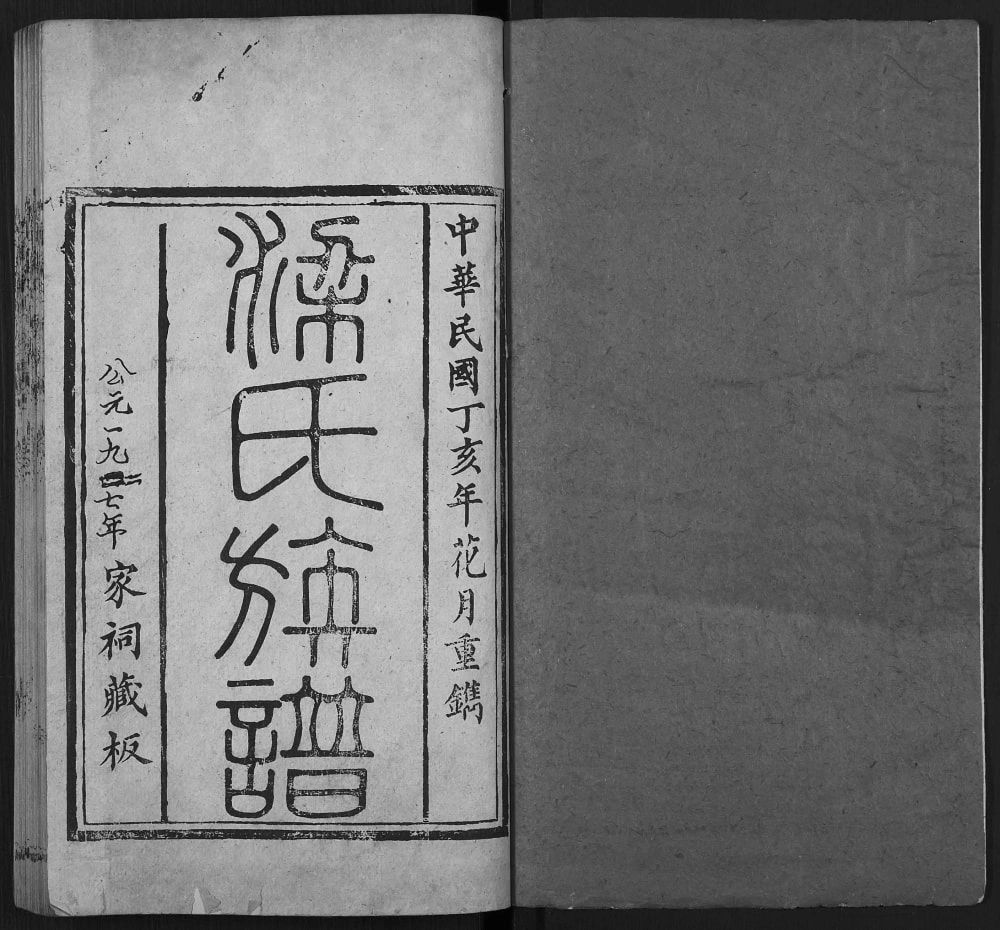 中華民國丁亥年花月重鐫
梁氏族譜
公元一九四七年
家祠藏板